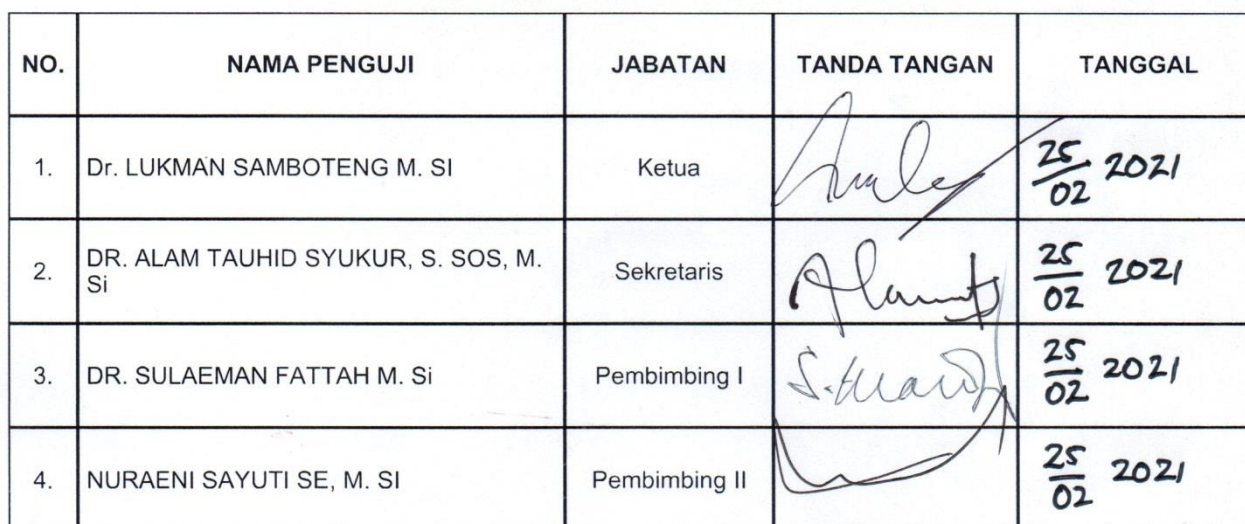 NO. NAMA PENGUJI JABATAN TANDA TANGAN TANGGAL
1. Dr. LUKMAN SAMBOTENG M. SI Ketua 25/02 2021
2. DR. ALAM TAUHID SYUKUR, S. SOS, M.
Si Sekretaris 25/02 2021
3. DR. SULAEMAN FATTAH M. Si Pembimbing I 25/02 2021
4. NURAENI SAYUTI SE, M. SI Pembimbing II 25/02 2021